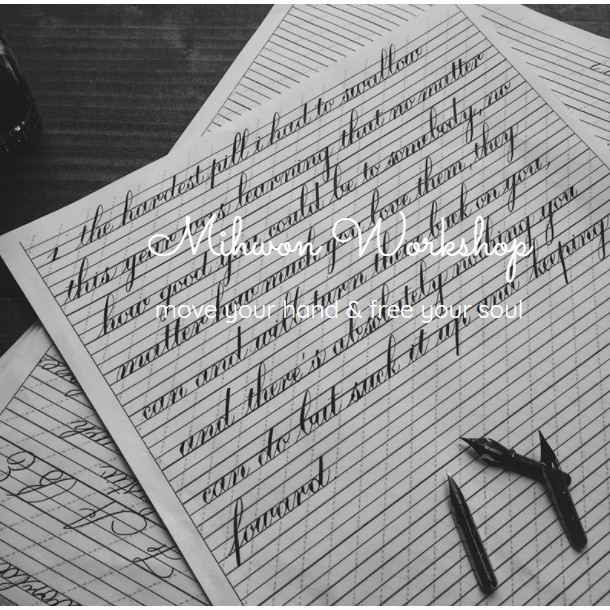 1 the hardest pill i had to swallow
this year was learning that no matter
how good you could be to somebody, no
matter how much you love them, they
can and will turn their back on you,
and there's absolutely nothing you
can do but suck it up and keeping
foward
Mihwon Workshop
move your hand & free your soul